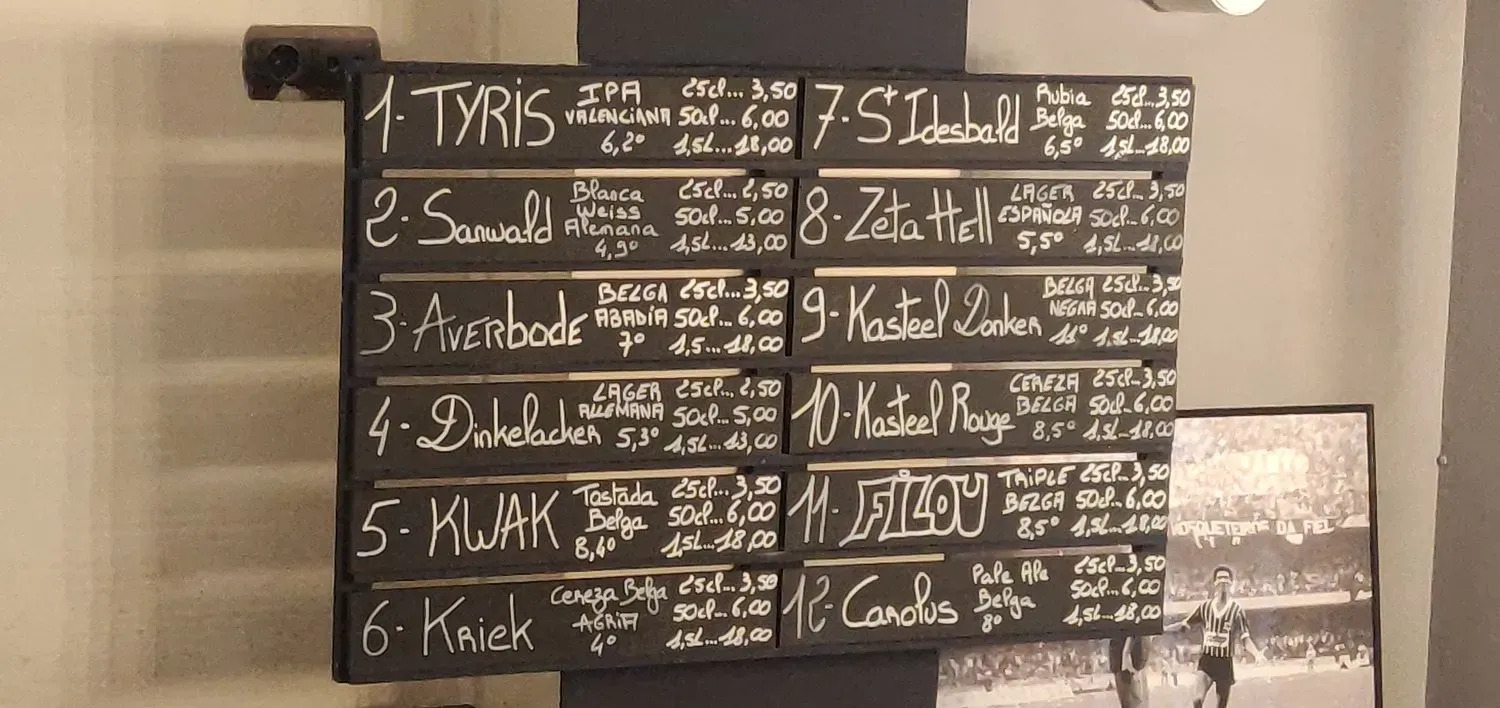 1- TYRIS IPA 25cl... 3,50
VALENCIANA 50cl... 6,00
6,2º 1,5L... 18,00
2- Sanwald Blanca 25cl... 2,50
Weiss 50cl... 5,00
Alemana
4,9º 1,5L... 13,00
3- AVERbODE BELGA 25cl... 3,50
ABADIA 50cl... 6,00
7º 1,5... 18,00
4- Dinkelacker LAGER 25cl... 2,50
ALEMANA 50cl... 5,00
5,3º 1,5L... 13,00
5- KWAK Tostada 25cl... 3,50
Belga 50cl... 6,00
8,4º 1,5L... 18,00
6- Kriek Cereza Belga 25cl... 3,50
AGRIA 50cl... 6,00
4º 1,5L... 18,00
7- St Idesbald Rubia 25cl... 3,50
Belga 50cl... 6,00
6,5º 1,5L... 18,00
8- Zeta HEll LAGER 25cl... 3,50
ESPAÑOLA 50cl... 6,00
5,5º 1,5L... 18,00
9- Kasteel Donker BELGA 25cl... 3,50
NEGRA 50cl... 6,00
11º 1,5L... 18,00
10- Kasteel Rouge CEREZA 25cl... 3,50
BELGA 50cl... 6,00
8,5º 1,5L... 18,00
11- FiLOU TRiPLE 25cl... 3,50
BELGA 50cl... 6,00
8,5º 1,5L... 18,00
12- Carolus Pale Ale 25cl... 3,50
Belga 50cl... 6,00
8º 1,5L... 18,00
MOSQUETEIROS DA FIEL